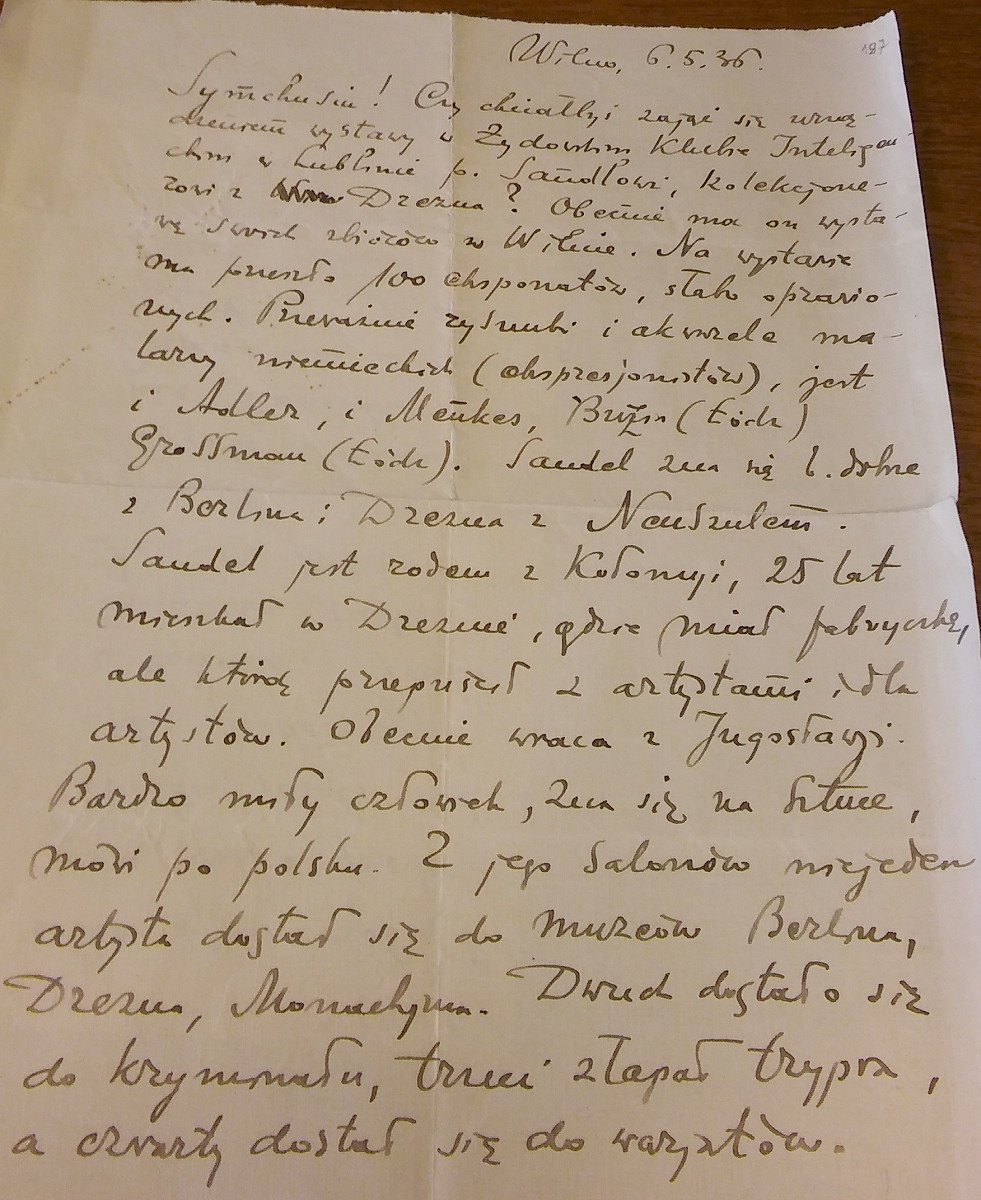 Wilno, 6.5.36.
187
Symchusiu! Czy chciałbyś zająć się urzą-
dzeniem wystawy w Żydowskim Klubie Inteligen-
ckim w Lublinie p. Sandlowi, kolekcjone-
rowi z Drezna? Obecnie ma on wysta-
wę swoich zbiorów w Wilnie. Na wystawie
ma przeszło 100 eksponatów, słabo oprawio-
nych. Przeważnie rysunki i akwarele ma-
larzy niemieckich (ekspresjonistów), jest
i Adler, i Menkes, (Łódź)
Grossman (Łódź). Sandel zna się b. dobrze
z Berlina i Drezna z Neuszulem.
Sandel jest rodem z Kołomyji, 25 lat
mieszkał w Dreznie, gdzie miał fabryczkę,
ale którą przepuścił z artystami i dla
artystów. Obecnie wraca z Jugosławji.
Bardzo miły człowiek, zna się na sztuce,
mówi po polsku. Z jego salonów niejeden
artysta dostał się do muzeów Berlina,
Drezna, Monachjum. Dwuch dostało się
do kryminału, trzeci złapał trypra,
a czwarty dostał się do warjatów.